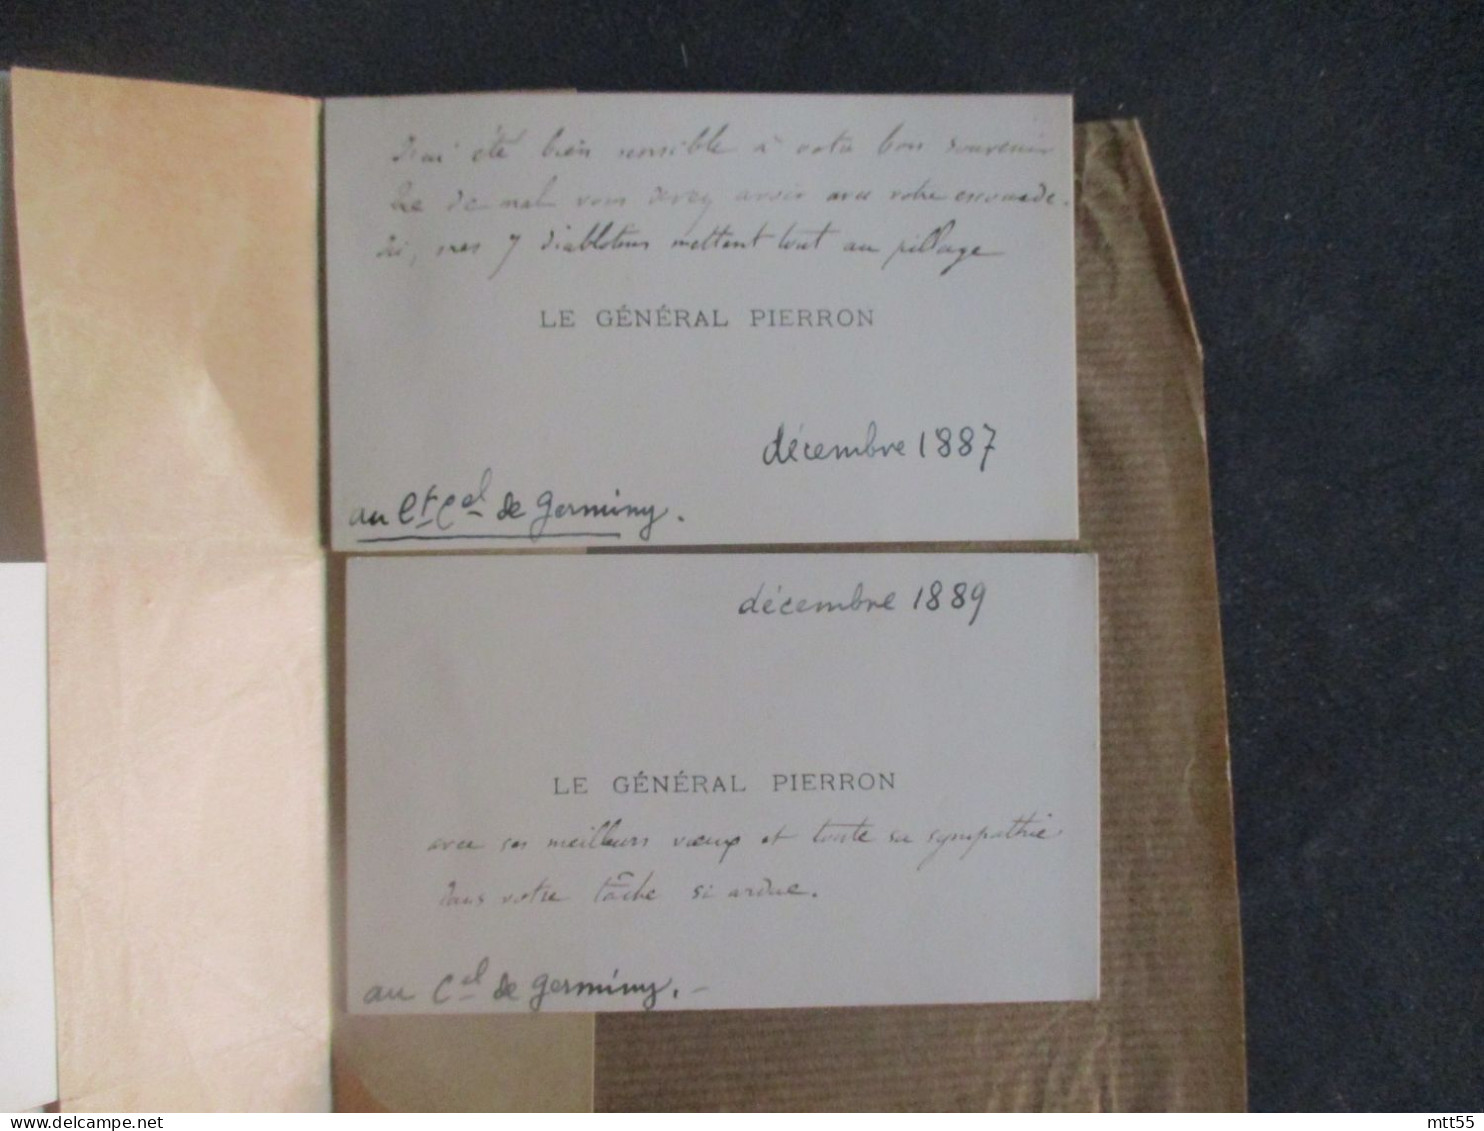 J'ai été bien sensible à votre bon souvenir
Que de mal vous devez avoir avec votre escouade.
Ici, mes 7 diablotins mettent tout au pillage
LE GÉNÉRAL PIERRON
décembre 1887
au Lt Cel de Germiny.
décembre 1889
LE GÉNÉRAL PIERRON
avec ses meilleurs vœux et toute sa sympathie
dans votre tâche si ardue.
au Cel de Germiny. -
mtt55